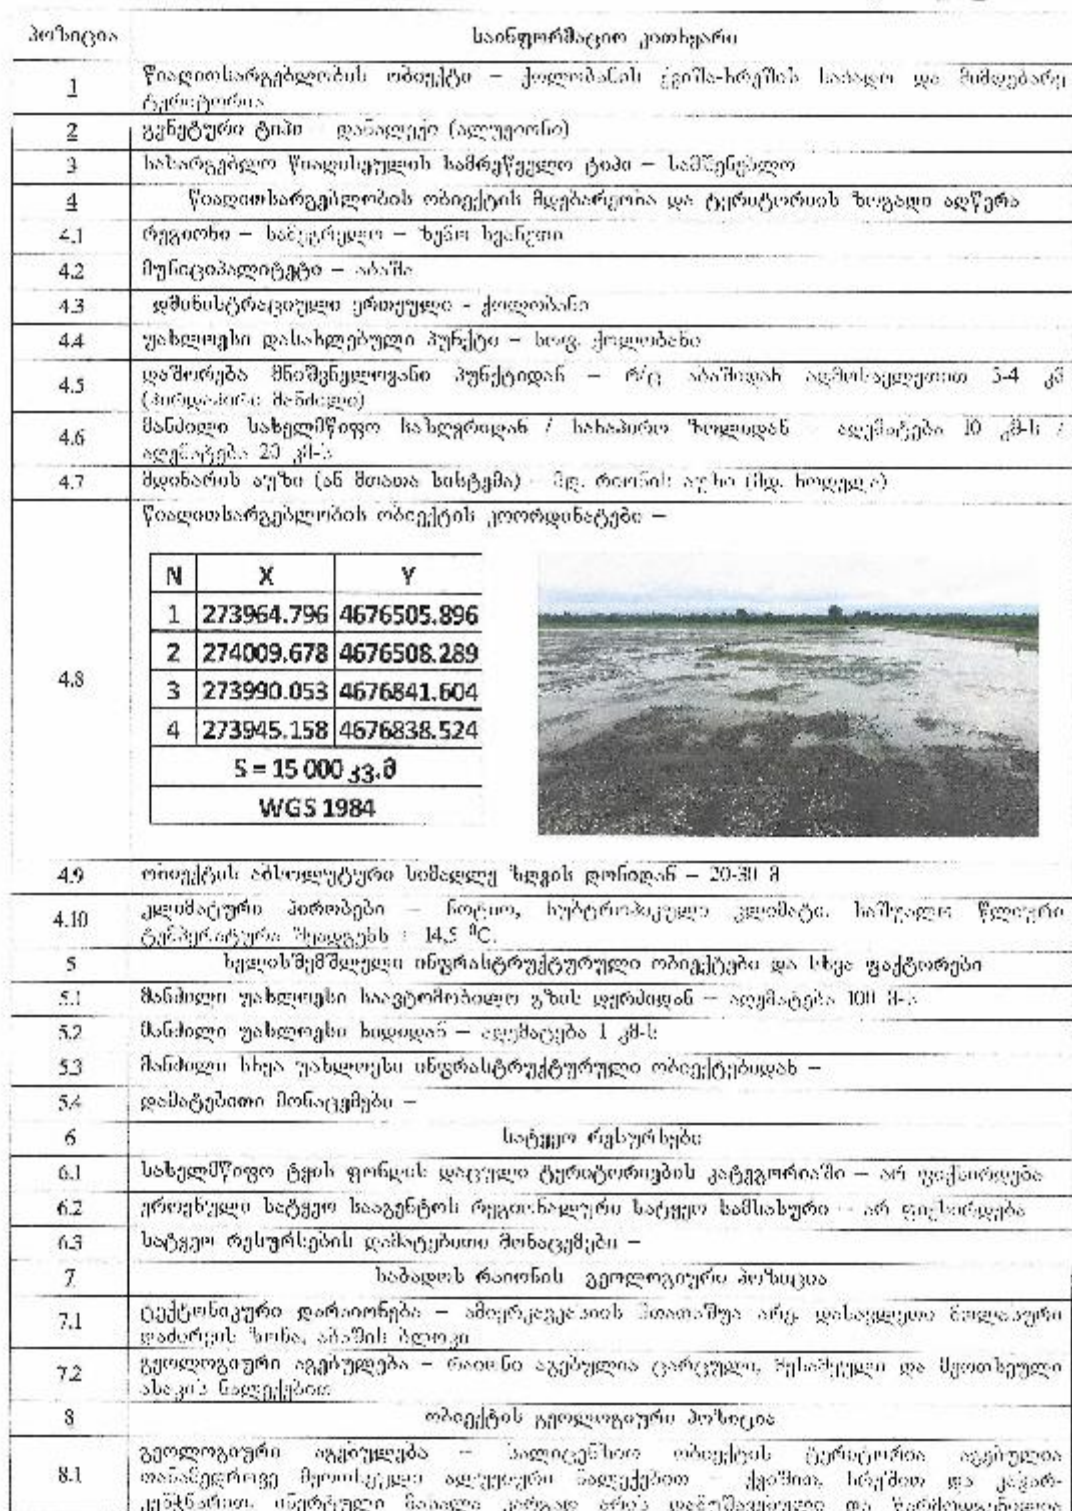 პოზიცია საინფორმაციო კითხვარი
1 წიაღითსარგებლობის ობიექტი – ქოლობანის ქვიშა-ხრეშის საბადო და მიმდებარე
ტერიტორია
2 გენეტური ტიპი დანალექი (ალუვიონი)
3 სასარგებლო წიაღისეულის სამრეწველო ტიპი – სამშენებლო
4 წიაღითსარგებლობის ობიექტის მდებარეობა და ტერიტორიის ზოგადი აღწერა
4.1 რეგიონი – სამეგრელო – ზემო სვანეთი
4.2 მუნიციპალიტეტი – აბაშა
4.3 დმინისტრაციული ერთეული - ქოლობანი
4.4 უახლოესი დასახლებული პუნქტი – სოფ. ქოლობანი
4.5 დაშორება მნიშვნელოვანი პუნქტიდან – რ/ც აბაშიდან აღმოსავლეთით 3-4 კმ
(პირდაპირი მანძილი)
4.6 მანძილი სახელმწიფო საზღვრიდან / სანაპირო ზოლიდან აღემატება 10 კმ-ს /
აღემატება 20 კმ-ს
4.7 მდინარის აუზი (ან მთათა სისტემა) მდ. რიონის აუზი (მდ. ნოღელა)
წიაღითსარგებლობის ობიექტის კოორდინატები –
4.8
N X Y
1 273964.796 4676505.896
2 274009.678 4676508.289
3 273990.053 4676841.604
4 273945.158 4676838.524
S = 15 000 კვ.მ
WGS 1984
4.9 ობიექტის აბსოლუტური სიმაღლე ზღვის დონიდან – 20-30 მ
4.10 კლიმატური პირობები – ნოტიო, სუბტროპიკული კლიმატი. საშუალო წლიური
ტემპერატურა შეადგენს + 14,5 ⁰C.
5 ხელისშემშლელი ინფრასტრუქტურული ობიექტები და სხვა ფაქტორები
5.1 მანძილი უახლოესი საავტომობილო გზის ღერძიდან – აღემატება 100 მ-ს
5.2 მანძილი უახლოესი ხიდიდან – აღემატება 1 კმ-ს
5.3 მანძილი სხვა უახლოესი ინფრასტრუქტურული ობიექტებიდან –
5.4 დამატებითი მონაცემები –
6 სატყეო რესურსები
6.1 სახელმწიფო ტყის ფონდის დაცული ტერიტორიების კატეგორიაში – არ ფიქსირდება
6.2 ეროვნული სატყეო სააგენტოს რეგიონალური სატყეო სამსახური – არ ფიქსირდება
6.3 სატყეო რესურსების დამატებითი მონაცემები –
7 საბადოს რაიონის გეოლოგიური პოზიცია
7.1 ტექტონიკური დარაიონება – ამიერკავკასიის მთათაშუა არე. დასავლეთი მოლასური
დაძირვის ზონა, აბაშის ბლოკი
7.2 გეოლოგიური აგებულება – რაიონი აგებულია ცარცული, მესამეული და მეოთხეული
ასაკის ნალექებით
8 ობიექტის გეოლოგიური პოზიცია
8.1 გეოლოგიური აგებულება – სალიცენზიო ობიექტის ტერიტორია აგებულია
თანამედროვე მეოთხეული ალუვიური ნალექებით – ქვიშით, ხრეშით და კაჭარ-
კენჭნარით. ინერტული მასალა კარგად არის დამუშავებული და